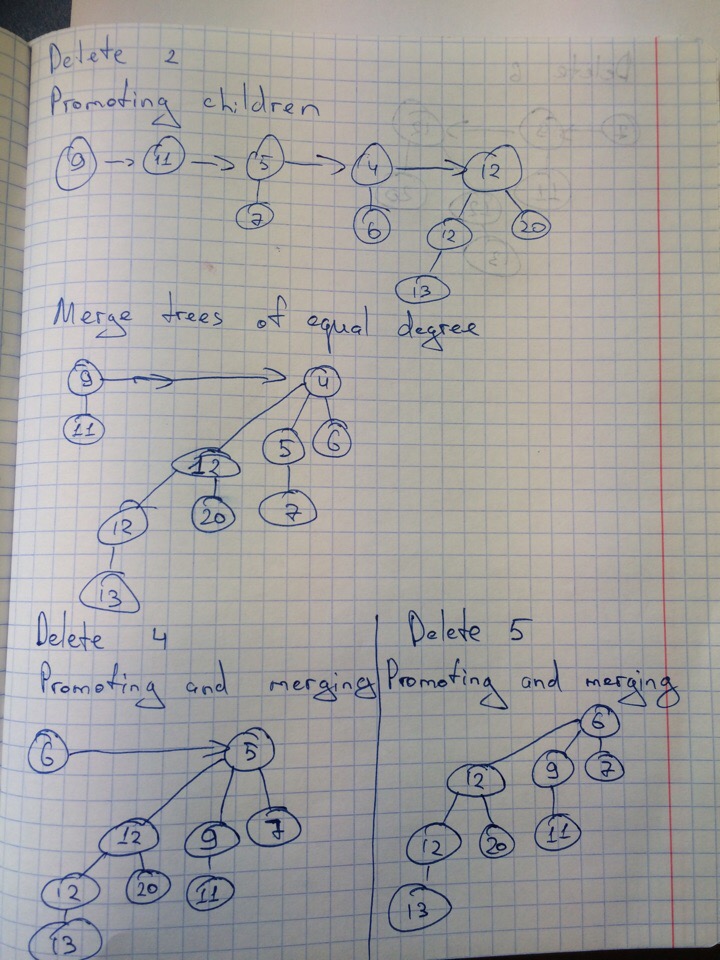 Delete 2
Promoting children
9 11 5 4 12
7 6 12 20
13
Merge trees of equal degree
9 4
11 12 5 6
12 20 7
13
Delete 4
Promoting and merging
6 5
12 9 7
12 20 11
13
Delete 5
Promoting and merging
6
12 9 7
12 20 11
13